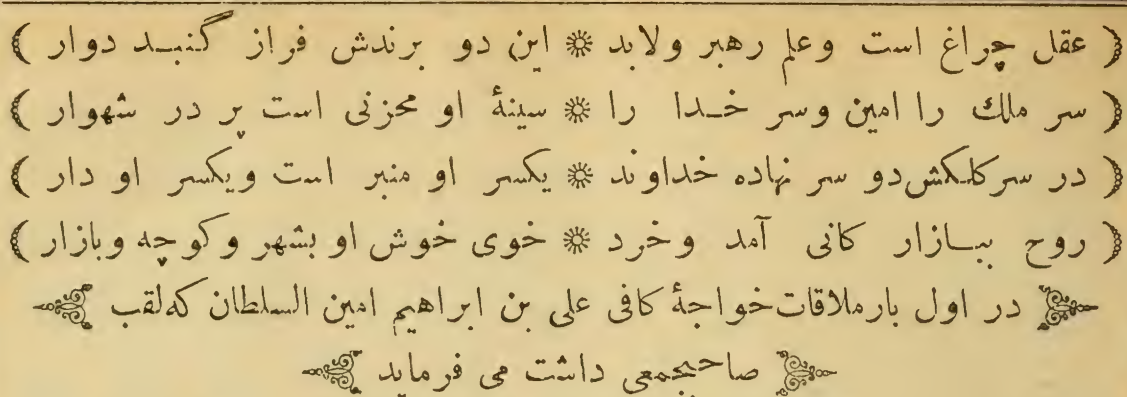 ﴿ عقل چراغ است وعلم رهبر ولابد ❊ این دو برندش فراز گنبد دوار ﴾
﴿ سر ملك را امین وسر خدا را ❊ سینهٔ او محزنی است پر در شهوار ﴾
﴿ در سر كلكش دو سر نهاده خداوند ❊ یكسر او منبر است ویكسر او دار ﴾
﴿ روح ببازار كانی آمد وخرد ❊ خوی خوش او بشهر وكوچه وبازار ﴾
در اول بار ملاقات خواجهٔ كافی علی بن ابراهیم امین السلطان كه لقب
صاحبجمعی داشت می فرماید